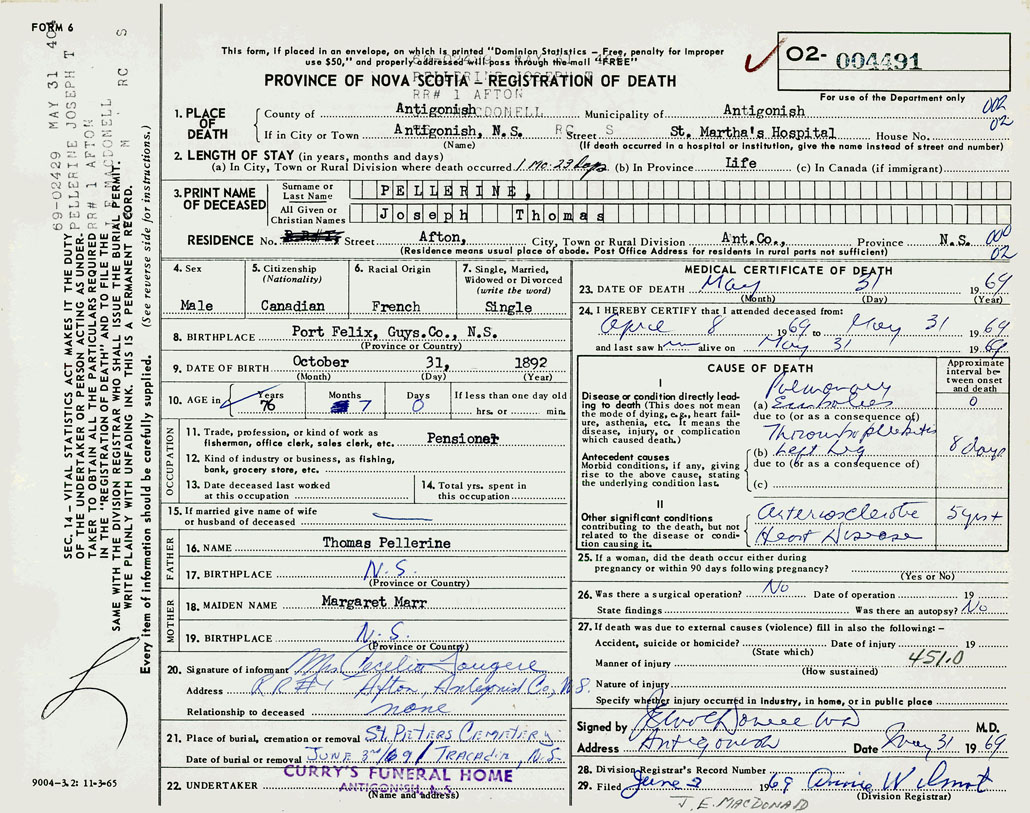 FORM 6
This form, if placed in an envelope, on which is printed "Dominion Statistics – Free, penalty for improper
use $50," and properly addressed will pass through the mail "FREE"
PROVINCE OF NOVA SCOTIA – REGISTRATION OF DEATH
O2- 004491
For use of the Department only
69-02429 MAY 31
PELLERINE JOSEPH T
RR# 1 AFTON
MACDONELL
M RC S
SEC. 14 – VITAL STATISTICS ACT MAKES IT THE DUTY
OF THE UNDERTAKER OR PERSON ACTING AS UNDER-
TAKER TO OBTAIN ALL THE PARTICULARS REQUIRED
IN THE "REGISTRATION OF DEATH" AND TO FILE THE
SAME WITH THE DIVISION REGISTRAR WHO SHALL ISSUE THE BURIAL PERMIT.
WRITE PLAINLY WITH UNFADING INK. THIS IS A PERMANENT RECORD.
Every item of information should be carefully supplied. (See reverse side for instructions.)
PELLERINE JOSEPH T
RR# 1 AFTON
MACDONELL
RC S
1. PLACE OF DEATH County of Antigonish Municipality of Antigonish 002
If in City or Town Antigonish, N.S. Street St. Martha's Hospital House No. 02
(Name) (If death occurred in a hospital or institution, give the name instead of street and number)
2. LENGTH OF STAY (in years, months and days)
(a) In City, Town or Rural Division where death occurred 1 Mo. 23 Days (b) In Province Life (c) In Canada (if immigrant)
3. PRINT NAME OF DECEASED Surname or Last Name PELLERINE,
All Given or Christian Names Joseph Thomas
RESIDENCE No. Street Afton, City, Town or Rural Division Ant.Co., Province N.S. 000
02
(Residence means usual place of abode. Post Office Address for residents in rural parts not sufficient)
4. Sex Male
5. Citizenship (Nationality) Canadian
6. Racial Origin French
7. Single, Married, Widowed or Divorced (write the word) Single
8. BIRTHPLACE Port Felix, Guys.Co., N.S.
(Province or Country)
9. DATE OF BIRTH October 31, 1892
(Month) (Day) (Year)
10. AGE in Years 76 Months 7 Days 0 If less than one day old hrs. or min.
OCCUPATION
11. Trade, profession, or kind of work as fisherman, office clerk, sales clerk, etc. Pensioner
12. Kind of industry or business, as fishing, bank, grocery store, etc.
13. Date deceased last worked at this occupation
14. Total yrs. spent in this occupation
15. If married give name of wife or husband of deceased
FATHER
16. NAME Thomas Pellerine
17. BIRTHPLACE N.S.
(Province or Country)
MOTHER
18. MAIDEN NAME Margaret Marr
19. BIRTHPLACE N.S.
(Province or Country)
20. Signature of informant Mrs Cecelia Fougere
Address RR#1 Afton, Antigonish Co, N.S.
Relationship to deceased none
21. Place of burial, cremation or removal St. Peters Cemetery
Date of burial or removal June 3rd/69 / Tracadie, N.S.
22. UNDERTAKER CURRY'S FUNERAL HOME
ANTIGONISH, N.S.
(Name and address)
9004–3.2: 11-3-65
MEDICAL CERTIFICATE OF DEATH
23. DATE OF DEATH May 31 1969
(Month) (Day) (Year)
24. I HEREBY CERTIFY that I attended deceased from:
April 8 1969 to May 31 1969
and last saw him alive on May 31 1969
CAUSE OF DEATH
Approximate interval between onset and death
I
Disease or condition directly leading to death (This does not mean the mode of dying, e.g., heart failure, asthenia, etc. It means the disease, injury, or complication which caused death.)
Pulmonary
(a) Embolies 0
due to (or as a consequence of)
Thrombophlebitis
Antecedent causes
Morbid conditions, if any, giving rise to the above cause, stating the underlying condition last.
(b) Left Leg 8 days
due to (or as a consequence of)
(c)
II
Other significant conditions contributing to the death, but not related to the disease or condition causing it.
Arteriosclerotic 5 yrs+
Heart Disease
25. If a woman, did the death occur either during
pregnancy or within 90 days following pregnancy?
(Yes or No)
26. Was there a surgical operation? No Date of operation 19
State findings Was there an autopsy? No
27. If death was due to external causes (violence) fill in also the following: –
Accident, suicide or homicide? Date of injury 19
(State which) 451.0
Manner of injury
(How sustained)
Nature of injury
Specify whether injury occurred in industry, in home, or in public place
Signed by M.D.
Address Antigonish Date May 31 1969
28. Division Registrar's Record Number
29. Filed June 3 1969 Annie Wilmot
(Division Registrar)
J. E. MACDONALD